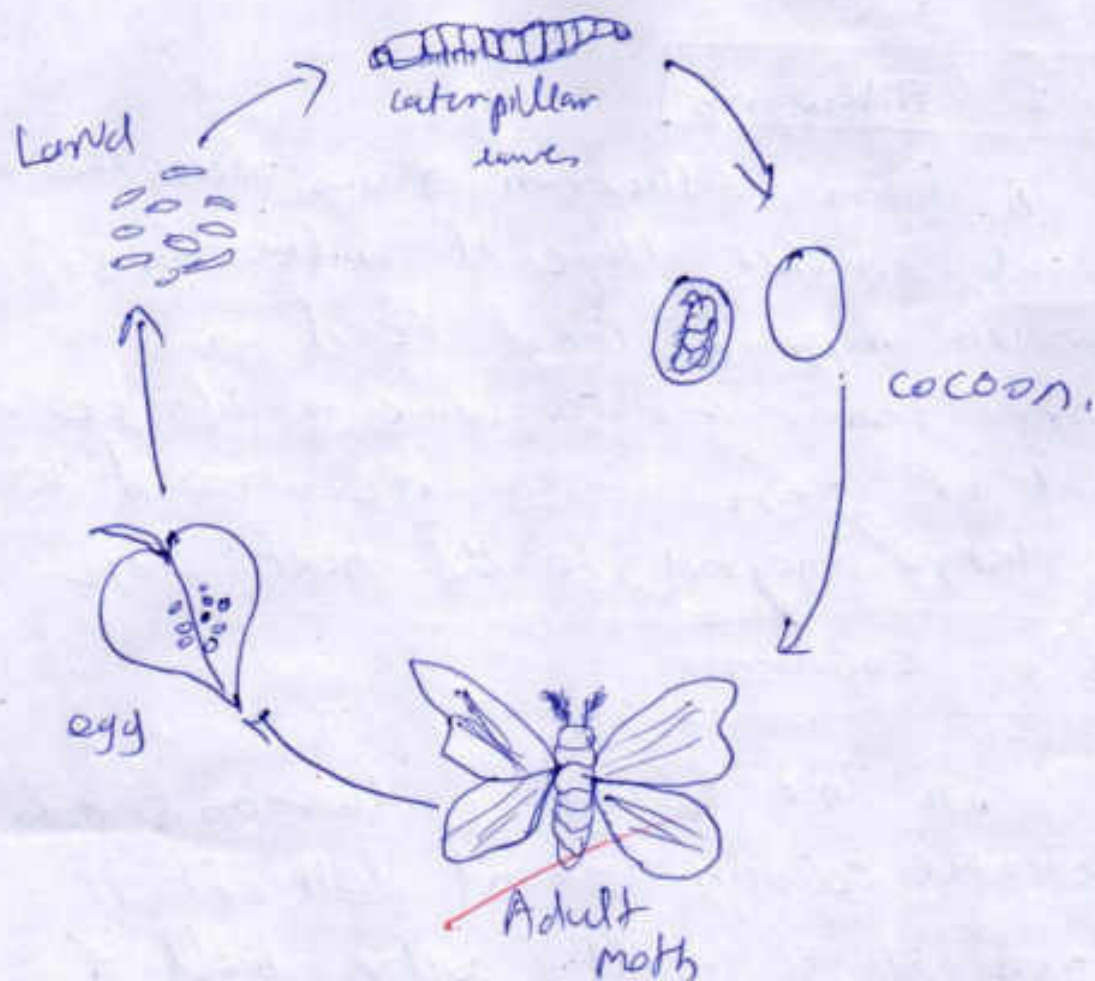 caterpillar
Larva
cocoon.
egg
Adult
moth